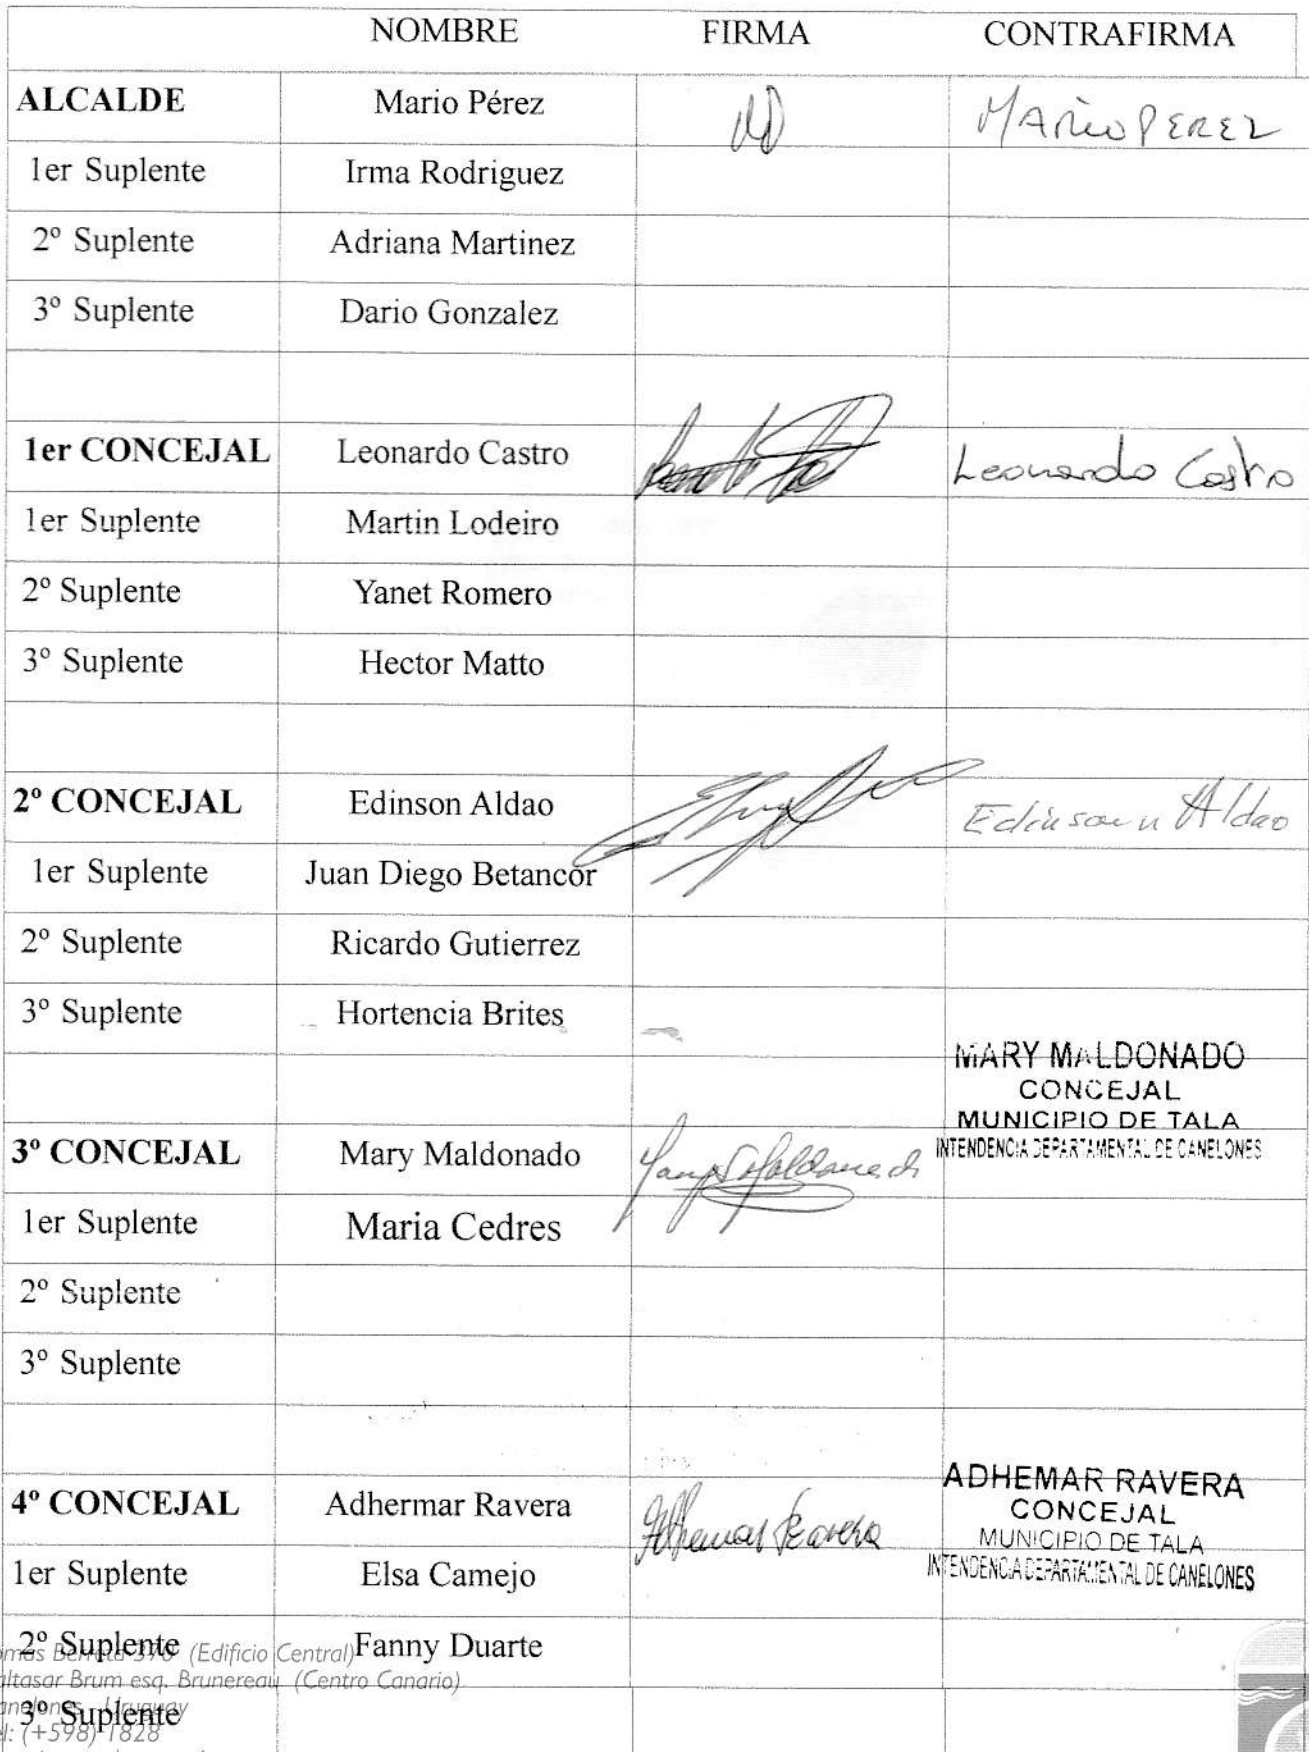 NOMBRE FIRMA CONTRAFIRMA
ALCALDE Mario Pérez MARIO PEREZ
1er Suplente Irma Rodriguez
2º Suplente Adriana Martinez
3º Suplente Dario Gonzalez
1er CONCEJAL Leonardo Castro Leonardo Castro
1er Suplente Martin Lodeiro
2º Suplente Yanet Romero
3º Suplente Hector Matto
2º CONCEJAL Edinson Aldao Edinson Aldao
1er Suplente Juan Diego Betancor
2º Suplente Ricardo Gutierrez
3º Suplente Hortencia Brites
MARY MALDONADO
CONCEJAL
MUNICIPIO DE TALA
INTENDENCIA DEPARTAMENTAL DE CANELONES
3º CONCEJAL Mary Maldonado Mary Maldonado
1er Suplente Maria Cedres
2º Suplente
3º Suplente
ADHEMAR RAVERA
CONCEJAL
MUNICIPIO DE TALA
INTENDENCIA DEPARTAMENTAL DE CANELONES
4º CONCEJAL Adhermar Ravera Adhemar Ravera
1er Suplente Elsa Camejo
2º Suplente Fanny Duarte
(Edificio Central)
Brum esq. Brunereau (Centro Canario)
Uruguay
3º Suplente
(+598) 1828